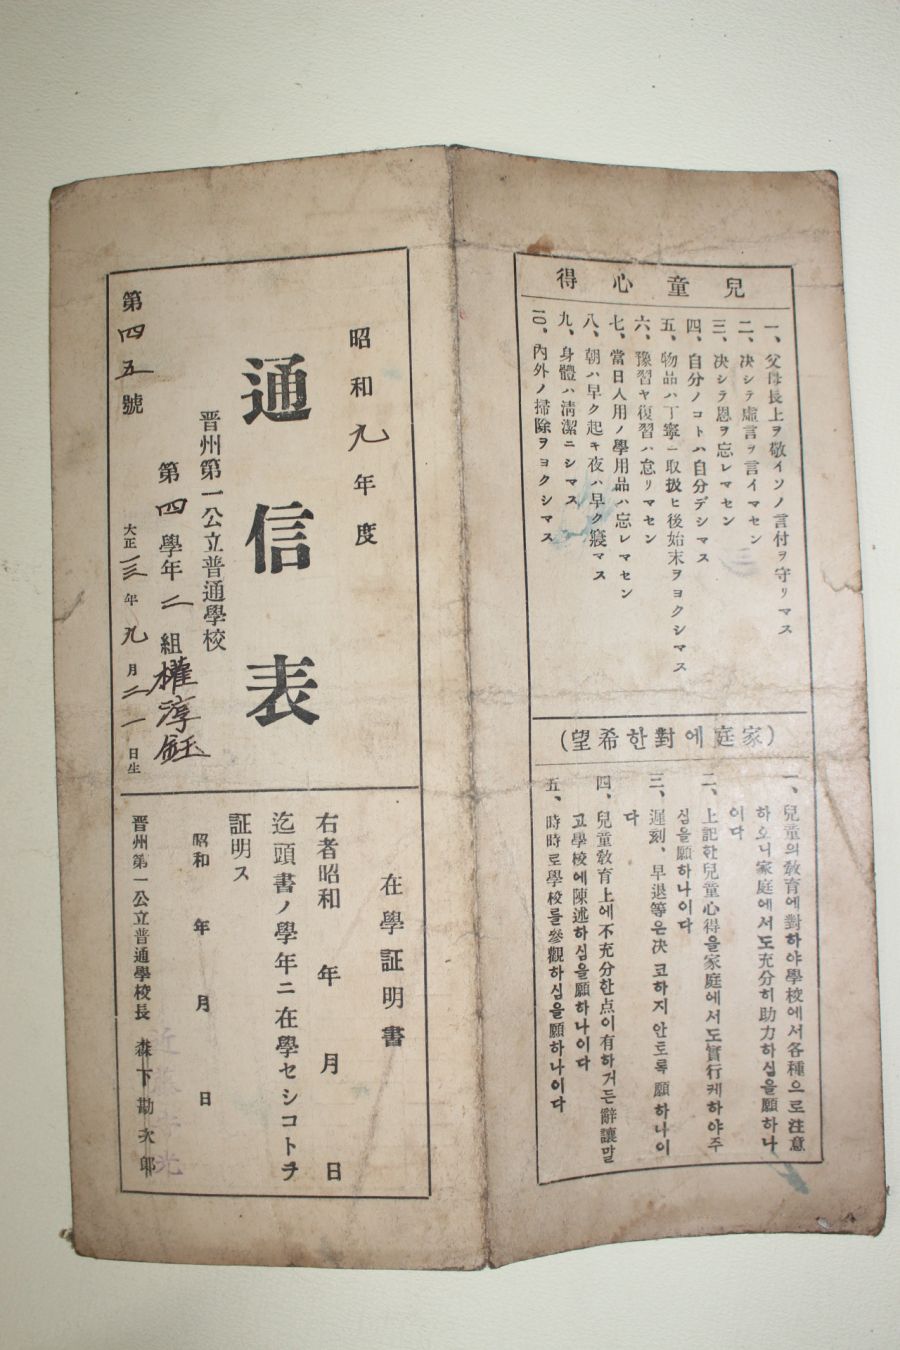 兒童心得
一、父母長上ヲ敬イソノ言付ヲ守リマス
二、決シテ虛言ヲ言イマセン
三、決シテ恩ヲ忘レマセン
四、自分ノコトハ自分デシマス
五、物品ハ丁寧ニ取扱ヒ後始末ヲヨクシマス
六、豫習ヤ復習ハ怠リマセン
七、當日入用ノ學用品ハ忘レマセン
八、朝ハ早ク起キ夜ハ早ク寢マス
九、身體ハ淸潔ニシマス
一〇、內外ノ掃除ヲヨクシマス
(家庭에對한希望)
一、兒童의敎育에對하야學校에서各種으로注意
하오니家庭에서도充分히助力하심을願하나
이다
二、上記한兒童心得을家庭에서도實行케하야주
심을願하나이다
三、遲刻、早退等은決코하지안토록願하나이
다
四、兒童敎育上에不充分한点이有하거든辭讓말
고學校에陳述하심을願하나이다
五、時時로學校를參觀하심을願하나이다
昭和九年度
通信表
晋州第一公立普通學校
第四學年二組 權淳鈺
大正一三年九月二一日生
第四五號
在學証明書
右者昭和 年 月 日
迄頭書ノ學年ニ在學セシコトヲ
証明ス
昭和 年 月 日
晋州第一公立普通學校長 森下勘次郎